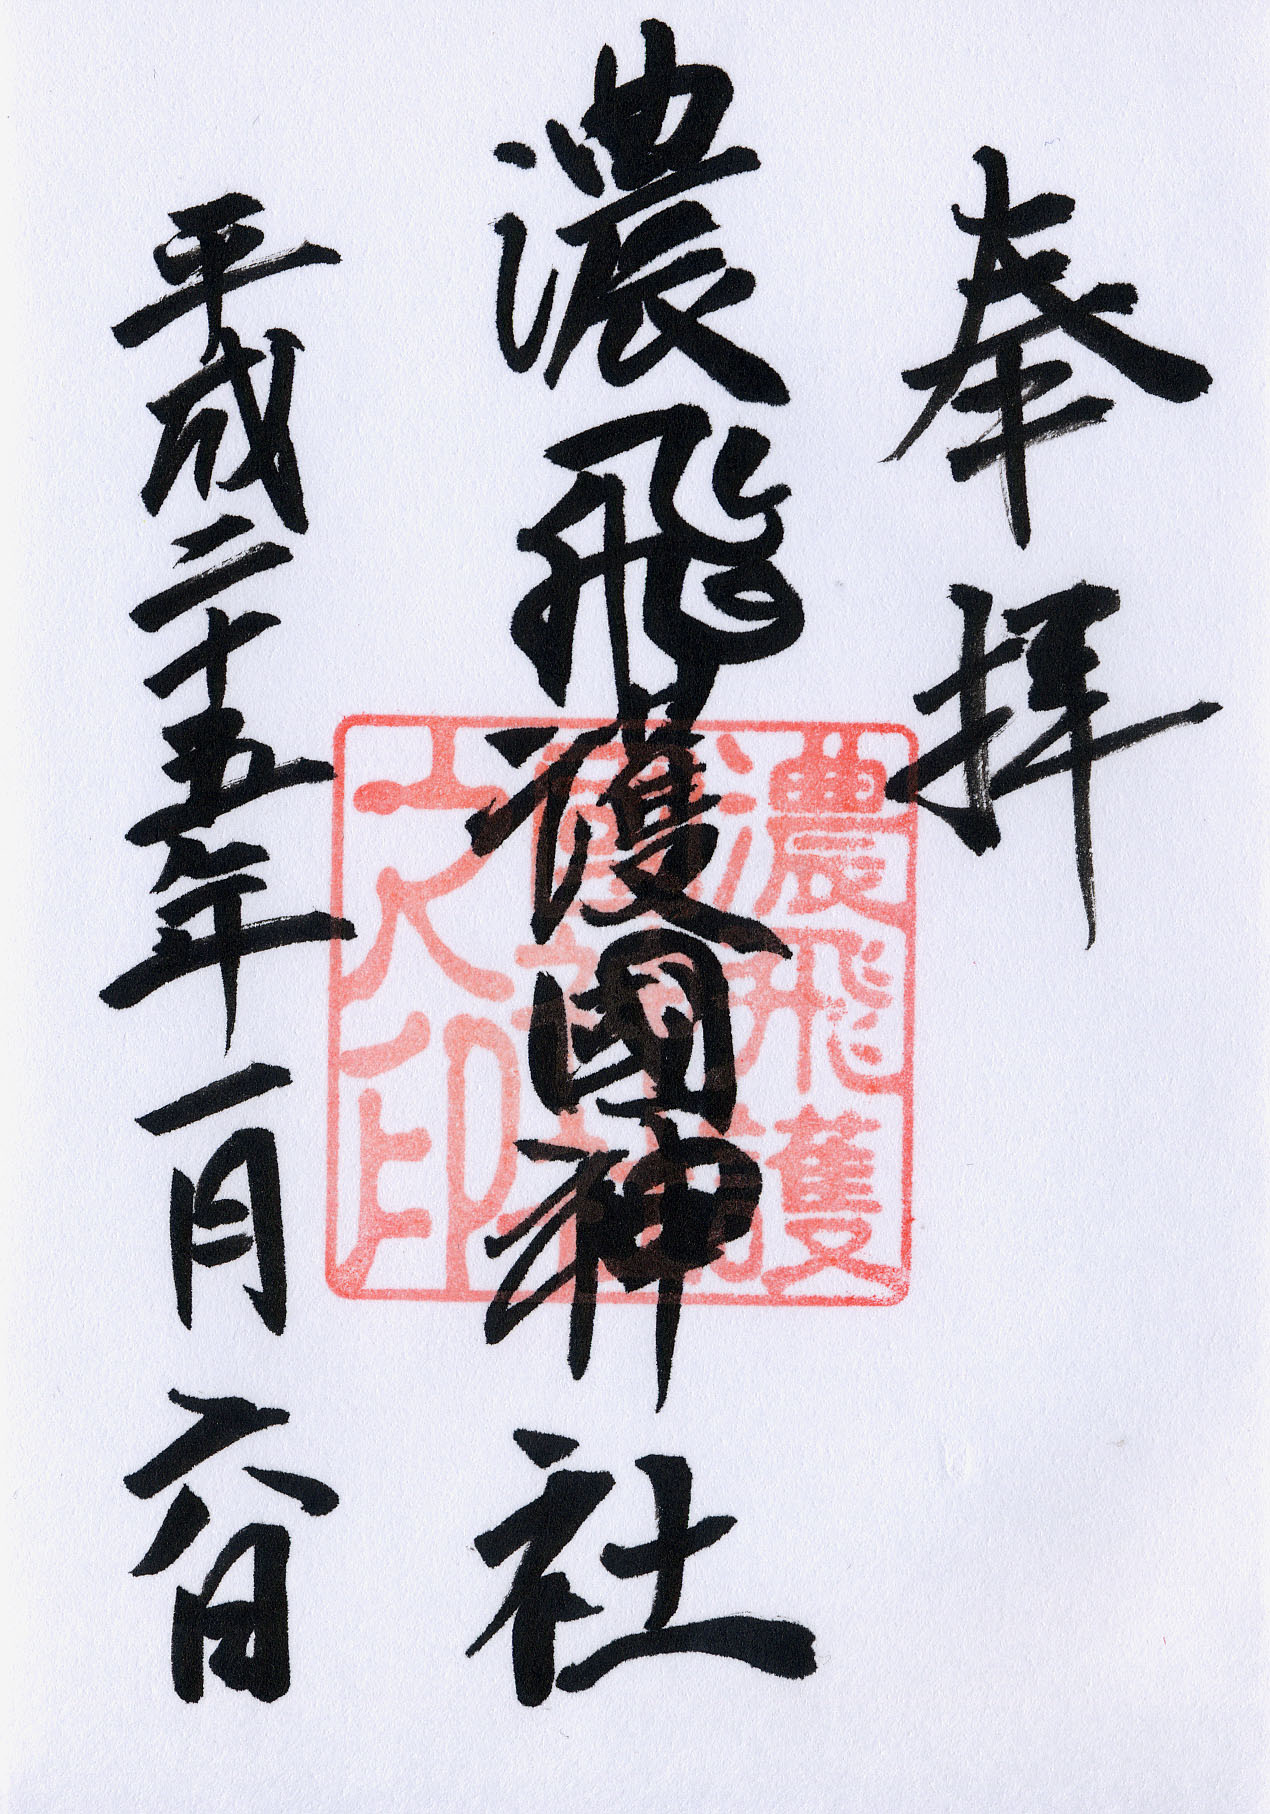 奉拝
濃飛護國神社
平成二十五年一月六日
濃飛護
國神社
之大印